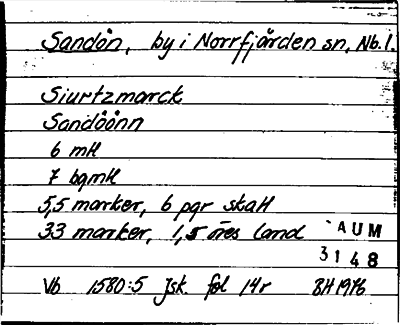 Sandön, by i Norrfjärden sn, Nb. l.
Siurtzmarck
Sandöönn
6 mtl
7 bgmtl
5,5 marker, 6 pgr skatt
33 marker, 1,5 öres land
AUM
3148
Vb 1580:5 Jsk. fol 14r BH 1976